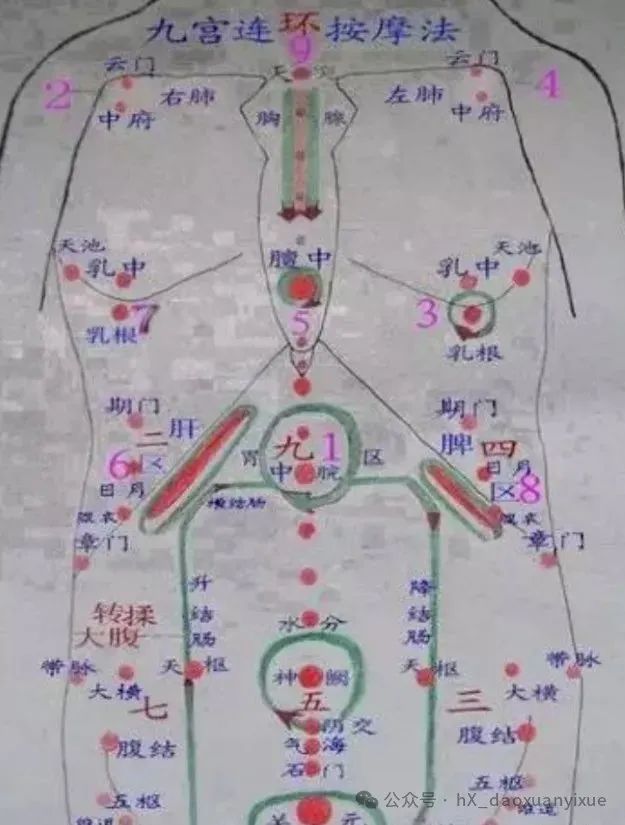 九宫连环按摩法
9
云门
云门
2
右肺
左肺
4
中府
胸
腺
中府
天池
乳中
膻中
乳中
天池
7
5
3
乳根
乳根
期门
期门
肝
二
九
1
脾
四
6
区
胃
中脘
区
日月
区
8
日月
横结肠
章门
章门
升结肠
降结肠
转揉
大腹
水分
带脉
天枢
神阙
天枢
带脉
大横
大横
七
五
三
阴交
腹结
气海
腹结
石门
五枢
五枢
维道
关元
公众号 · hX_daoxuanyixue